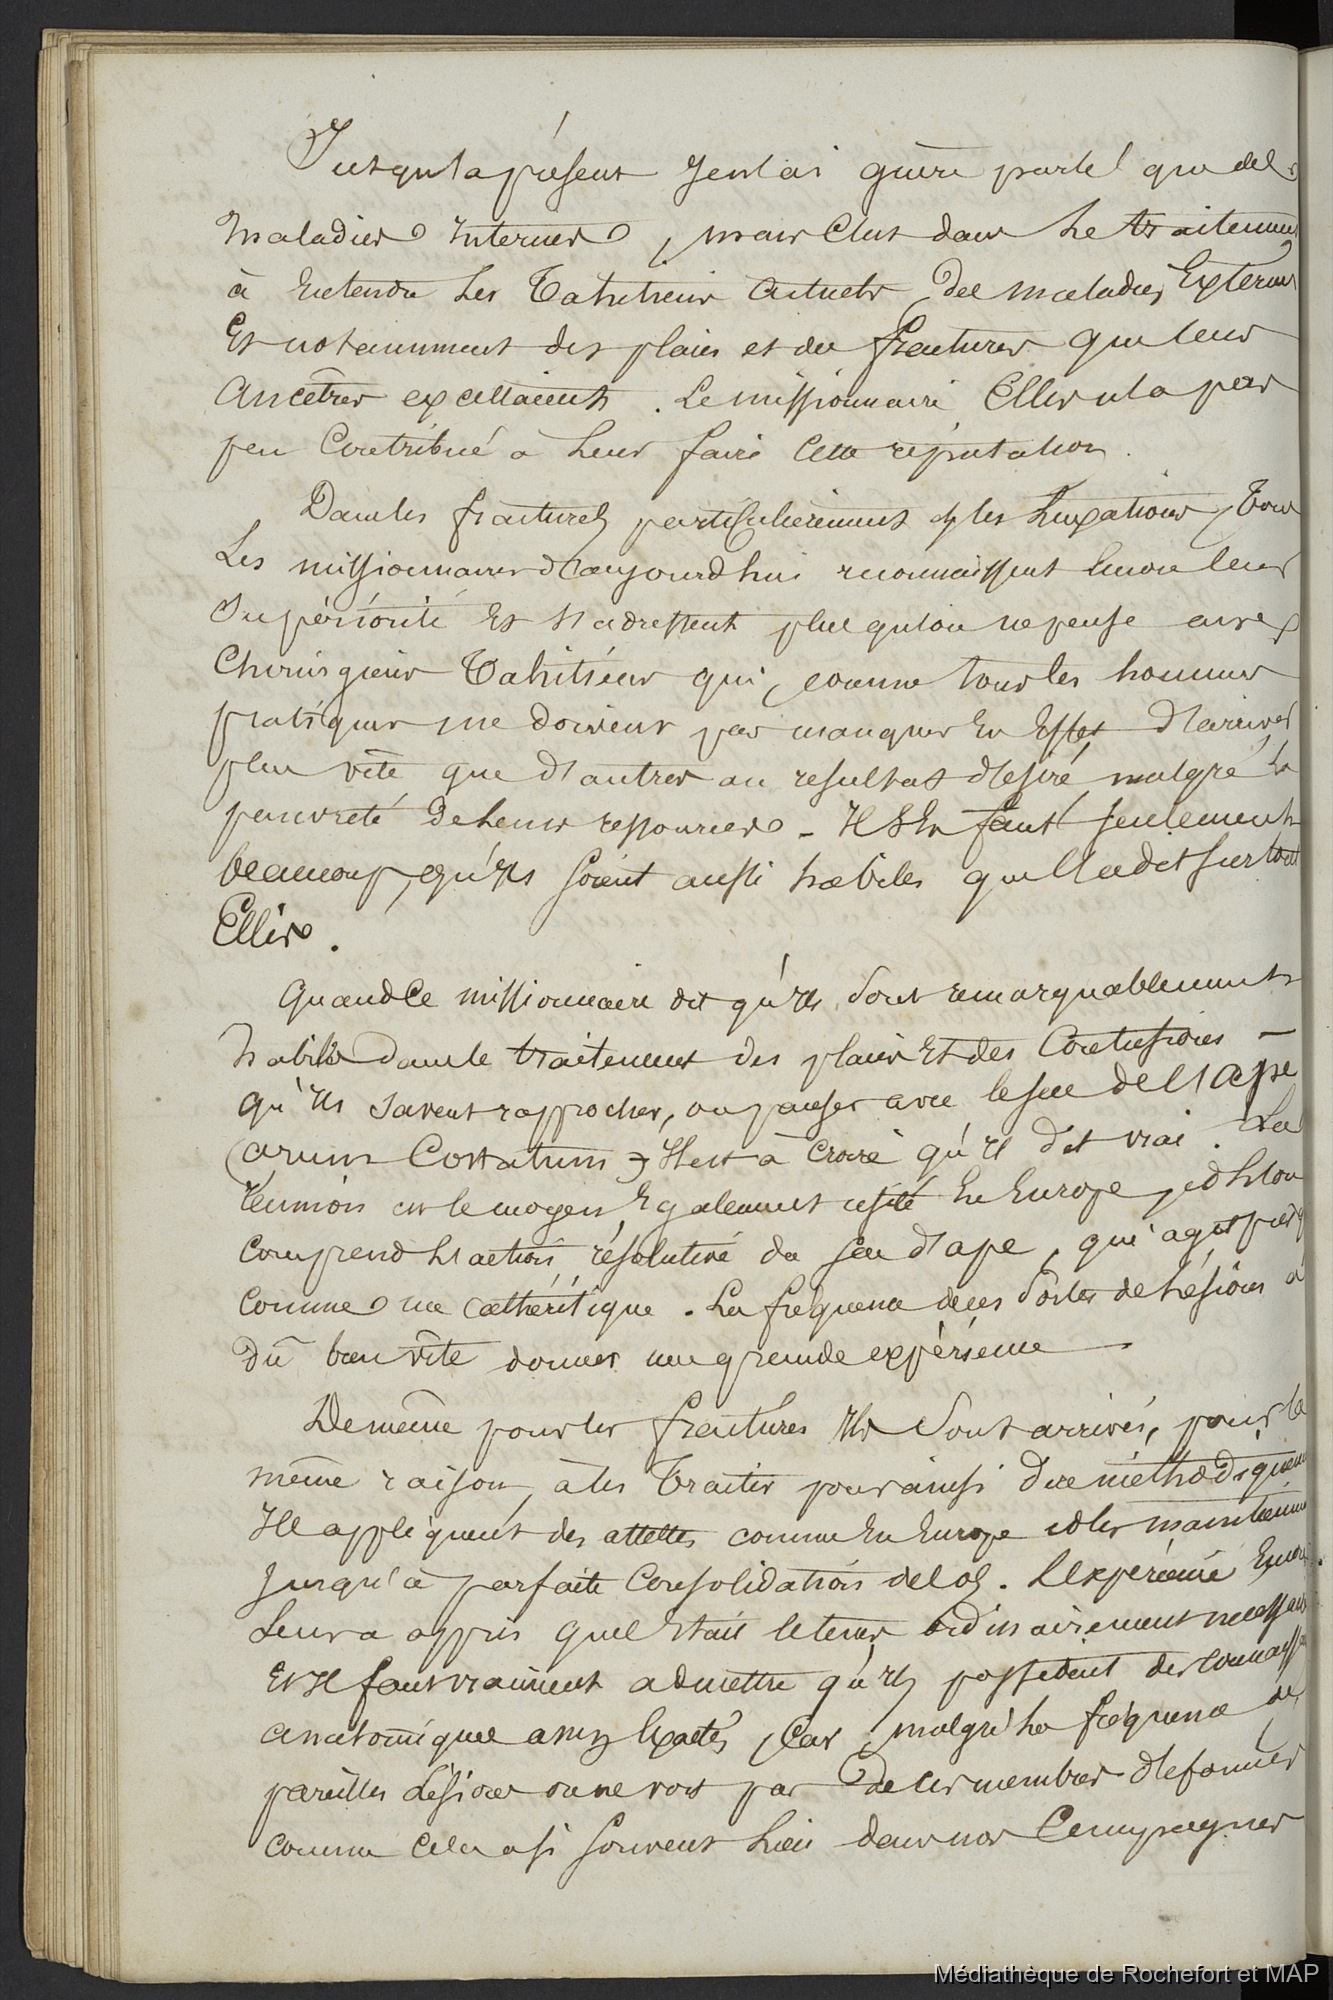 Jusqu'à présent je n'ai guère parlé que des
maladies internes, mais c'est dans le traitement
à entendre les Tahitiens actuels, des maladies externes
et notamment des plaies et des fractures que leurs
Ancêtres excellaient. Le missionnaire Ellis n'a pas
peu contribué à leur faire cette réputation.
Dans les fractures particulièrement et les luxations, tous
Les missionnaires d'aujourdhui reconnaissent encore leur
Supériorité et s'adressent plus qu'on ne pense aux
Chirurgiens Tahitiens qui, comme tous les hommes
pratiques ne doivent pas manquer en effet d'arriver
plus vite que d'autres au resultat désiré malgré la
pauvreté de leurs ressources - Il s'en faut seulement
beaucoup, qu'ils soient aussi habiles que l'a dit surtout
Ellis.
Quand ce missionnaire dit qu'ils sont remarquablement
habiles dans le traitement des plaies et des Contusions -
qu'ils savent rapprocher, ou panser avec le suc de l'ape
(arum Costatum) Il est à croire qu'il dit vrai. La
réunion est le moyen également usité en Europe, et l'on
comprend l'action résolutive du suc d'ape, qui agit presq
comme un cathérétique. La fréquence de ces sortes de lésions a
dû bien vîte donner une grande expérience
De même pour les fractures ils sont arrivés, pour la
même raison, à les traiter pour ainsi dire méthodiquem
Ils appliquent des attelles comme en Europe et les maintiennen
jusqu'à parfaite consolidation de l'os. L'expérience encore
leur a appris quel était le tems ordinairement nécessaire
et il faut vraiment admettre qu'ils possèdent des connaissa
anatomiques assez exactes, car, malgré la fréquence de
pareilles lésions on ne voit pas de ces membres déformés
comme cela a si souvent lieu dans nos Campagnes
Médiathèque de Rochefort et MAP